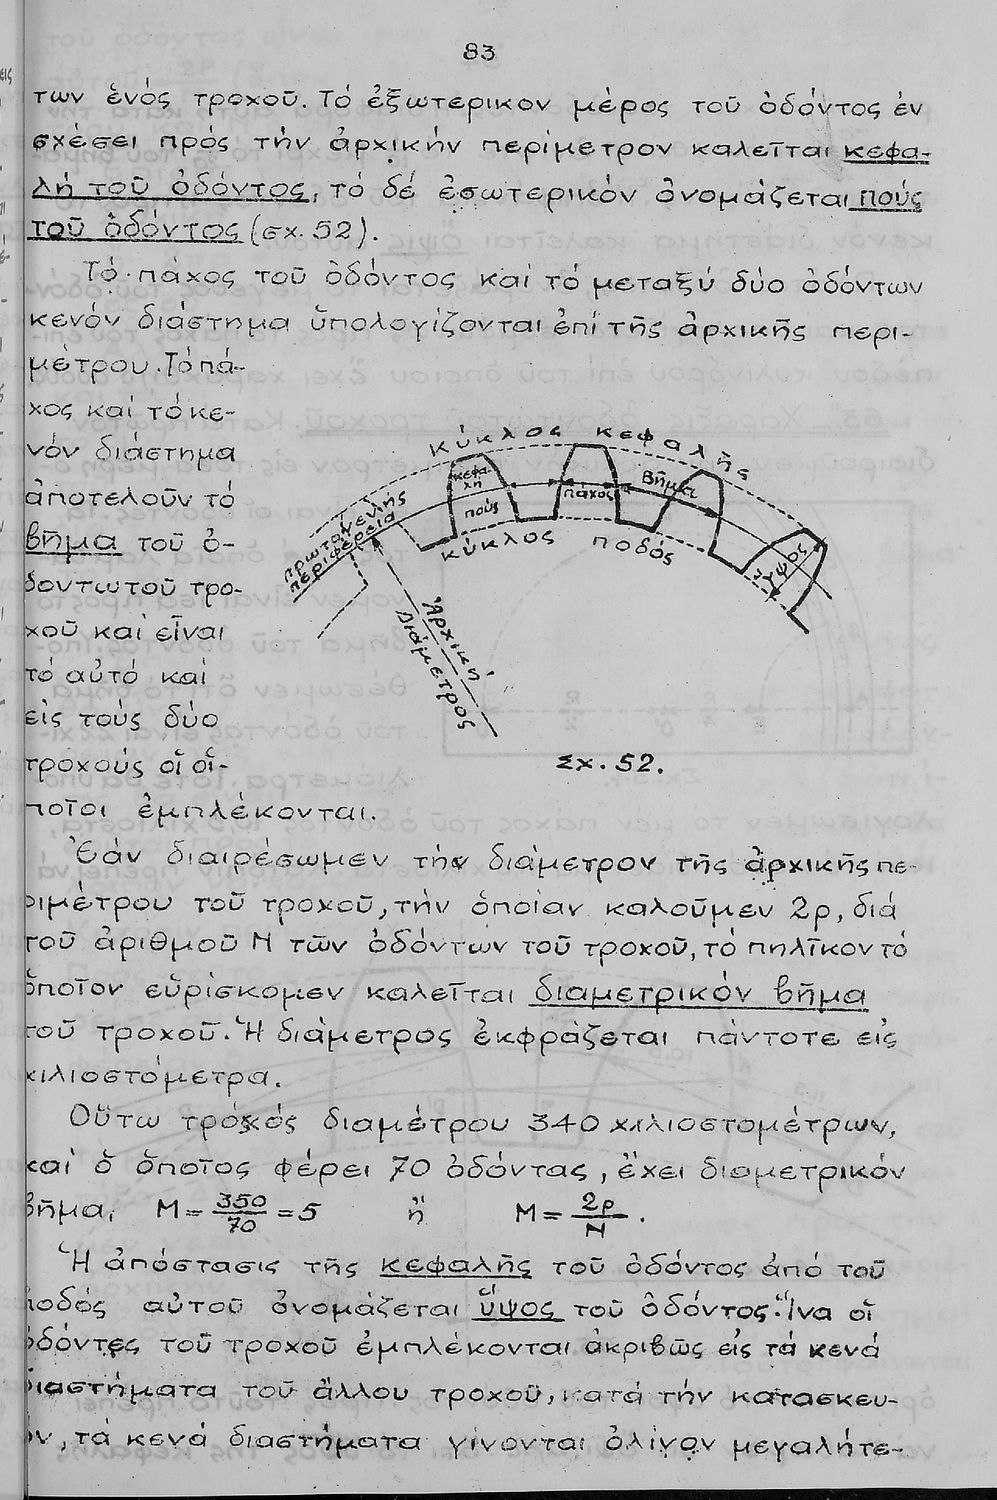 83
των ἑνός τροχοῦ. Τό ἐξωτερικον μέρος τοῦ ὀδόντος ἐν
σχέσει πρός τήν ἀρχικήν περίμετρον καλεῖται κεφα-
λή τοῦ ὀδόντος, τό δέ ἐσωτερικόν ὀνομάζεται πούς
τοῦ ὀδόντος (σχ. 52).
Τό πάχος τοῦ ὀδόντος καί τό μεταξύ δύο ὀδόντων
κενόν διάστημα ὑπολογίζονται ἐπί τῆς ἀρχικῆς περι-
μέτρου. Τό πά-
χος καί τό κε-
νόν διάστημα
ἀποτελοῦν τό
βῆμα τοῦ ὀ-
δοντωτοῦ τρο-
χοῦ καί εἶναι
τό αὐτό καί
εἰς τούς δύο
τροχούς οἵ οἵ-
ποῖοι ἐμπλέκονται.
κύκλος κεφαλῆς
κεφα-
λή
πούς
πάχος
βῆμα
ὕψος
κύκλος ποδός
πρωτογενής
περιφέρεια
Ἀρχική
Διάμετρος
Σχ. 52.
Ἐάν διαιρέσωμεν τήν διάμετρον τῆς ἀρχικῆς πε-
ριμέτρου τοῦ τροχοῦ, τήν ὁποίαν καλοῦμεν 2ρ, διά
τοῦ ἀριθμοῦ Ν τῶν ὀδόντων τοῦ τροχοῦ, τό πηλῖκον τό
ὁποῖον εὑρίσκομεν καλεῖται διαμετρικόν βῆμα
τοῦ τροχοῦ. Ἡ διάμετρος ἐκφράζεται πάντοτε εἰς
χιλιοστόμετρα.
Οὕτω τρόχός διαμέτρου 340 χιλιοστομέτρων,
καί ὅ ὁποῖος φέρει 70 ὀδόντας, ἔχει διαμετρικόν
βῆμα, Μ = 350/70 = 5 ἤ Μ = 2ρ/Ν.
Ἡ ἀπόστασις τῆς κεφαλῆς τοῦ ὀδόντος ἀπό τοῦ
ποδός αὐτοῦ ὀνομάζεται ὕψος τοῦ ὀδόντος. Ἵνα οἵ
ὀδόντες τοῦ τροχοῦ ἐμπλέκονται ἀκριβῶς εἰς τά κενά
διαστήματα τοῦ ἄλλου τροχοῦ, κατά τήν κατασκευ-
ήν, τά κενά διαστήματα γίνονται ὀλίγον μεγαλήτε-